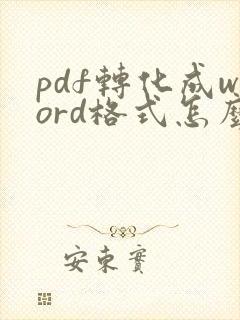 pdf轉化成w
ord格式怎麼
安東實